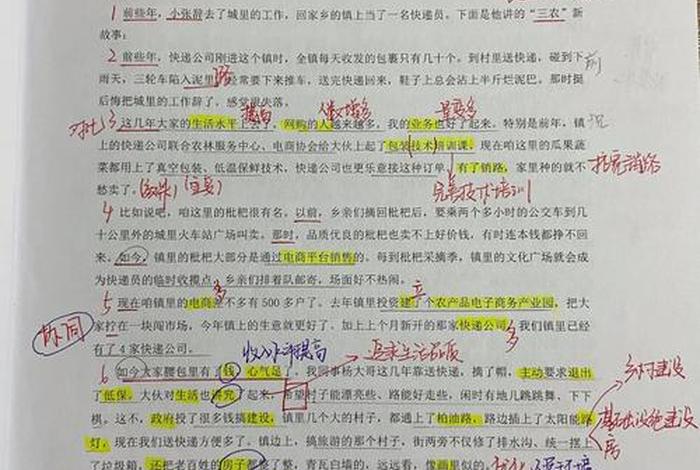 1 前些年，小张辞去了城里的工作，回家乡的镇上当了一名快递员。下面是他讲的“三农”新
故事：
2 前些年，快递公司刚进这个镇时，全镇每天收发的包裹只有几十个。到村里送快递，碰到下 前
雨天，三轮车陷入泥里 路 经常要下来推车，送完快递回来，鞋子上总会沾上半斤烂泥巴。那时挺
后悔把城里的工作辞了，感觉很失落。 况
提高 人数增多 量变多
对比 3 这几年大家的生活水平上去了，网购的人越来越多，我的业务也好了起来。特别是前年，镇
上的快递公司联合农林服务中心、电商协会给大伙上起了包装技术培训课。现在咱这里的瓜果蔬
菜都用上了真空包装、低温保鲜技术，快递公司也更乐意接这种订单，有了销路，家里种的就不 拓宽销路
愁卖了。 完善技术培训
4 比如说吧，咱这里的枇杷很有名。以前，乡亲们摘回枇杷后，要乘两个多小时的公交车到几
十公里外的城里火车站广场叫卖。那时，品质优良的枇杷也卖不上好价钱，有时连本钱都挣不回
来。如今，镇里的枇杷大部分是通过电商平台销售的。每到枇杷采摘季，镇里的文化广场就会成
为快递员的临时收揽点，乡亲们排着队邮寄，场面好不热闹。
多 立
5 现在咱镇里的电商差不多有500多户了。去年镇里投资建了个农产品电子商务产业园，把大
协同 家拧在一块闯市场，今年镇上的生意就更好了。加上上个月新开的那家快递公司，多 我们镇里已经
有了4家快递公司。
收入水平提高 追求生活品质
6 如今大家腰包里有了钱，心气足了。我同事杨大哥这几年靠送快递，摘了帽，主动要求退出 乡村建设
了低保，大伙对生活也讲究了起来，希望村子能漂亮些、路能好走些，闲时有地儿跳跳舞、下下
棋。这不，政府投了很多钱搞建设，镇里几个大的村子，都通上了柏油路，路边插上了太阳能路 基础设施建设
灯，现在我们送快递方便多了。镇边上，搞旅游的那个村子，街两旁不仅修了排水沟、统一摆上 房
了垃圾箱，还把老百姓的房子都整了整，青瓦白墙的，远远看，像画里似的。